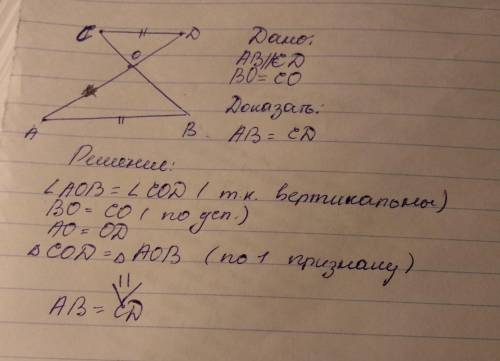 C D
O
A B
Дано:
AB||CD
BO = CO
Доказать:
AB = CD
Решение:
∠AOB = ∠COD ( т.к. вертикальны)
BO = CO ( по усл.)
AO = OD
△COD = △AOB (по 1 признаку)
AB = CD